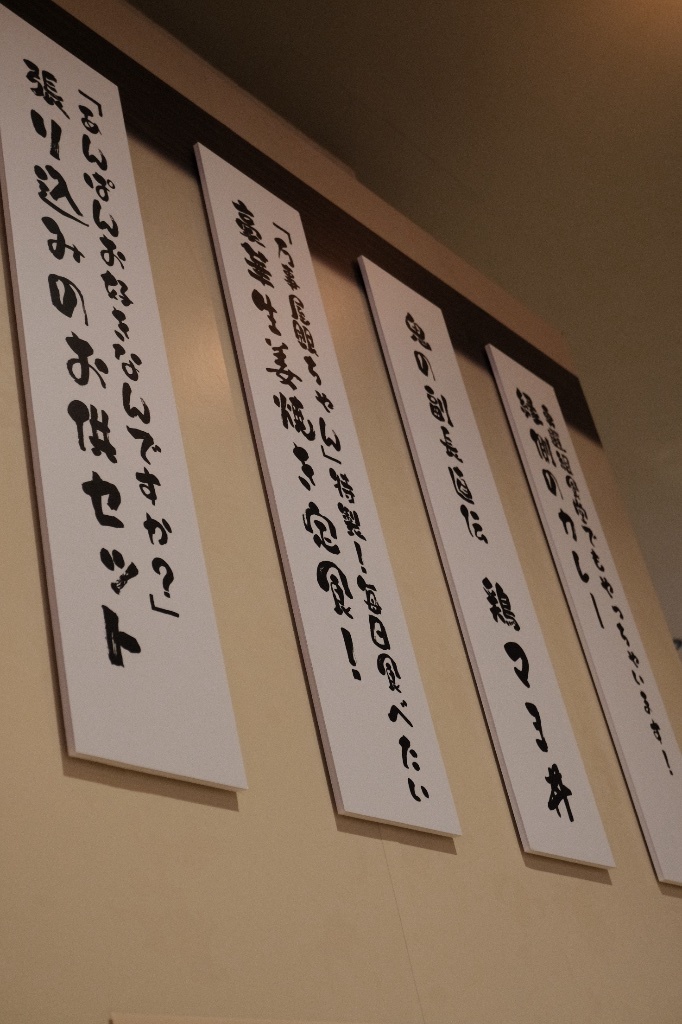 でもやっちゃいます！
のカレー
鬼の副長直伝　鶏マヨ丼
「万事屋銀ちゃん」！毎日食べたい
豪華生姜焼き定食！
「あんぱんお好きなんですか？」
張り込みのお供セット